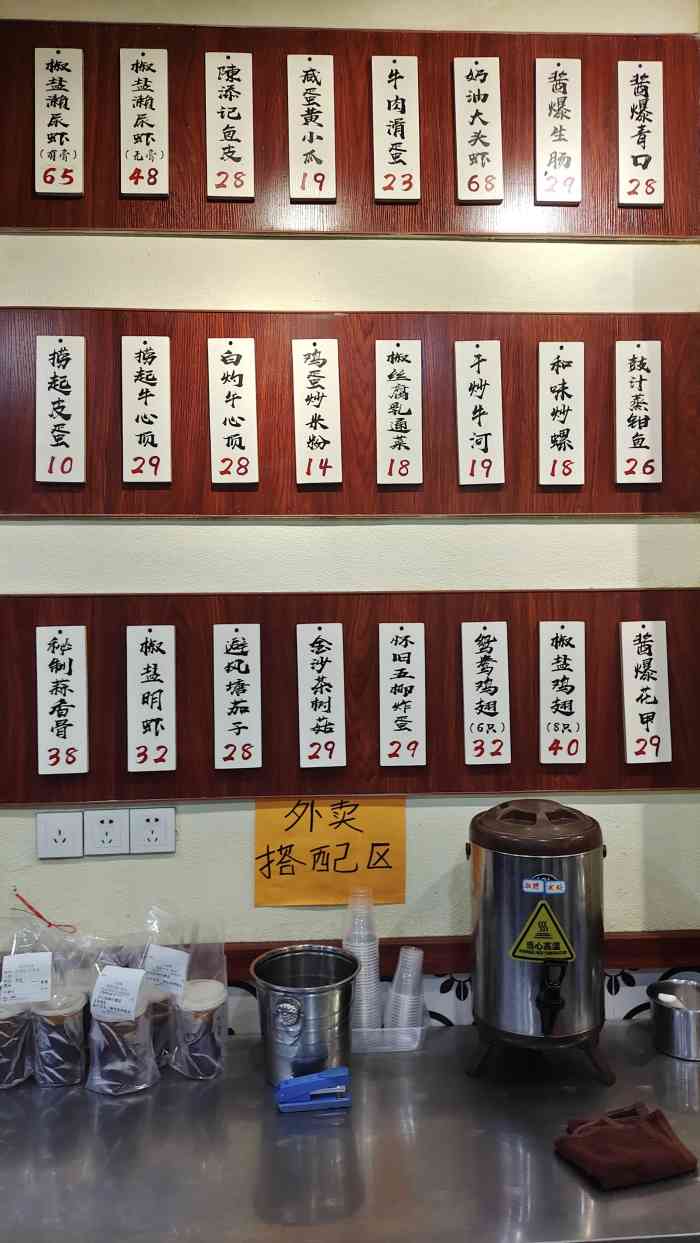 椒盐濑尿虾
(有膏)
65
椒盐濑尿虾
(无膏)
48
陳添记鱼皮
28
咸蛋黄小瓜
19
牛肉滑蛋
23
奶油大头虾
68
酱爆生肠
29
酱爆青口
28
捞起皮蛋
10
捞起牛心顶
29
白灼牛心顶
28
鸡蛋炒米粉
14
椒丝腐乳通菜
18
干炒牛河
19
和味炒螺
18
鼓汁蒸钳鱼
26
秘制蒜香骨
38
椒盐明虾
32
避风塘茄子
28
金沙茶树菇
29
怀旧五柳炸蛋
29
鸳鸯鸡翅
(6只)
32
椒盐鸡翅
(8只)
40
酱爆花甲
29
外卖
搭配区
当心高温